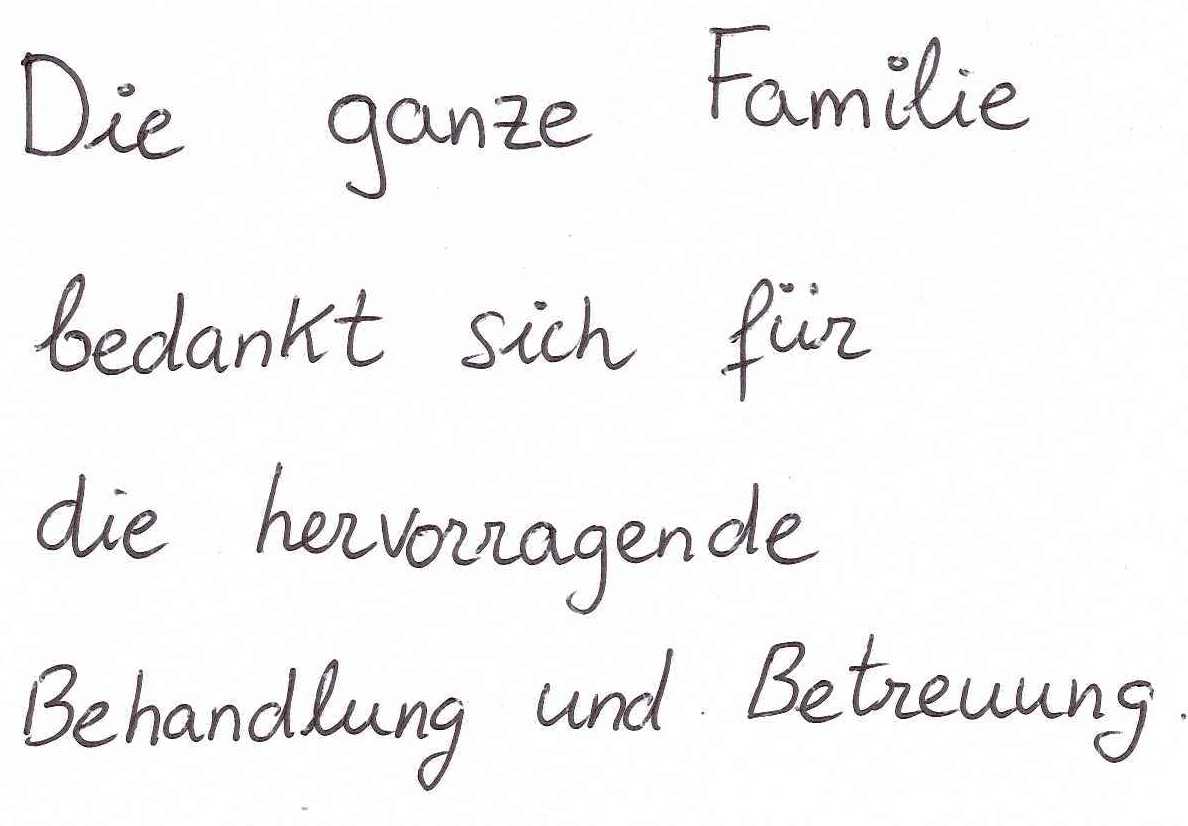 Die ganze Familie
bedankt sich für
die hervorragende
Behandlung und Betreuung.